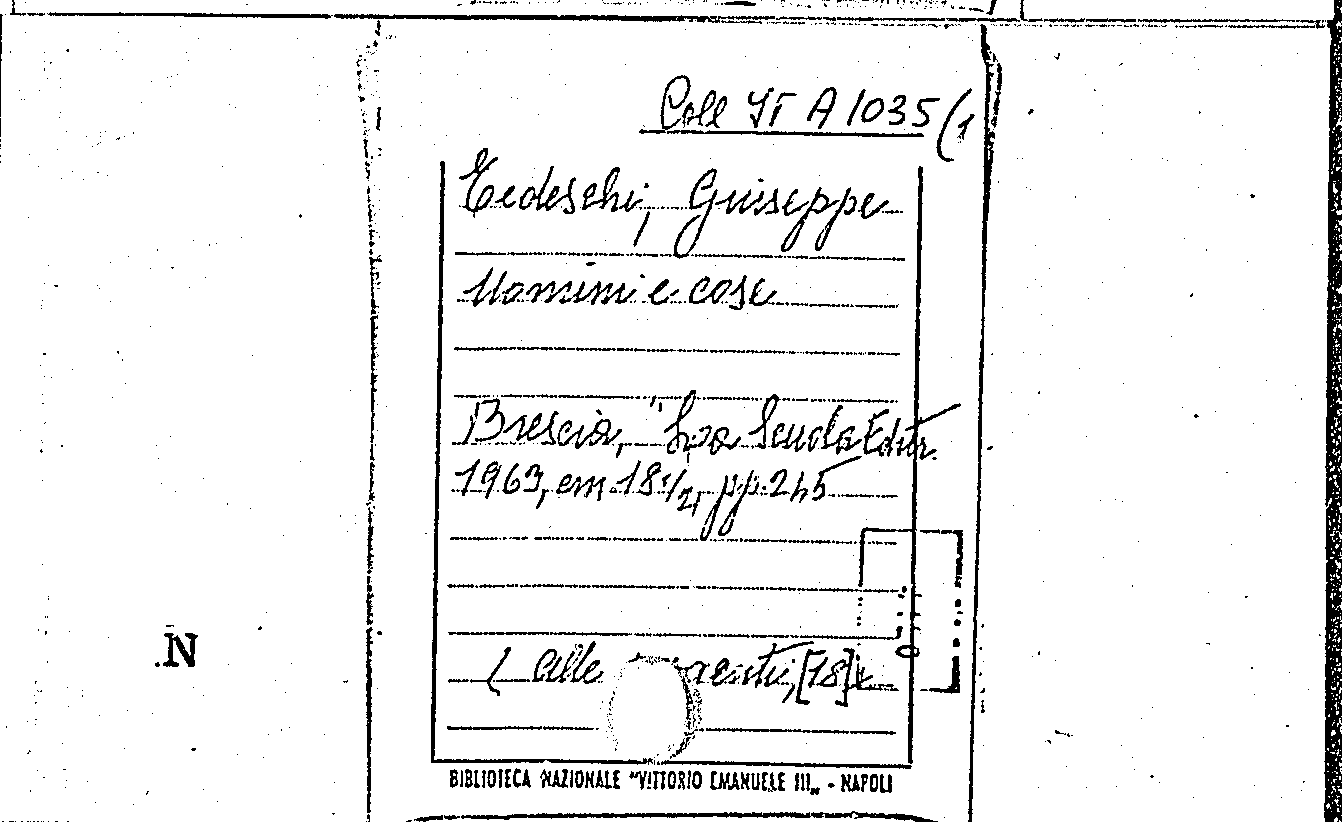 Coll IT A 1035 (1
Tedeschi, Giuseppe
Uomini e cose
Brescia, "La Scuola Editr.
1963, cm 18 1/2, pp. 245
.N
( alle [18]
BIBLIOTECA NAZIONALE "VITTORIO EMANUELE III„ - NAPOLI